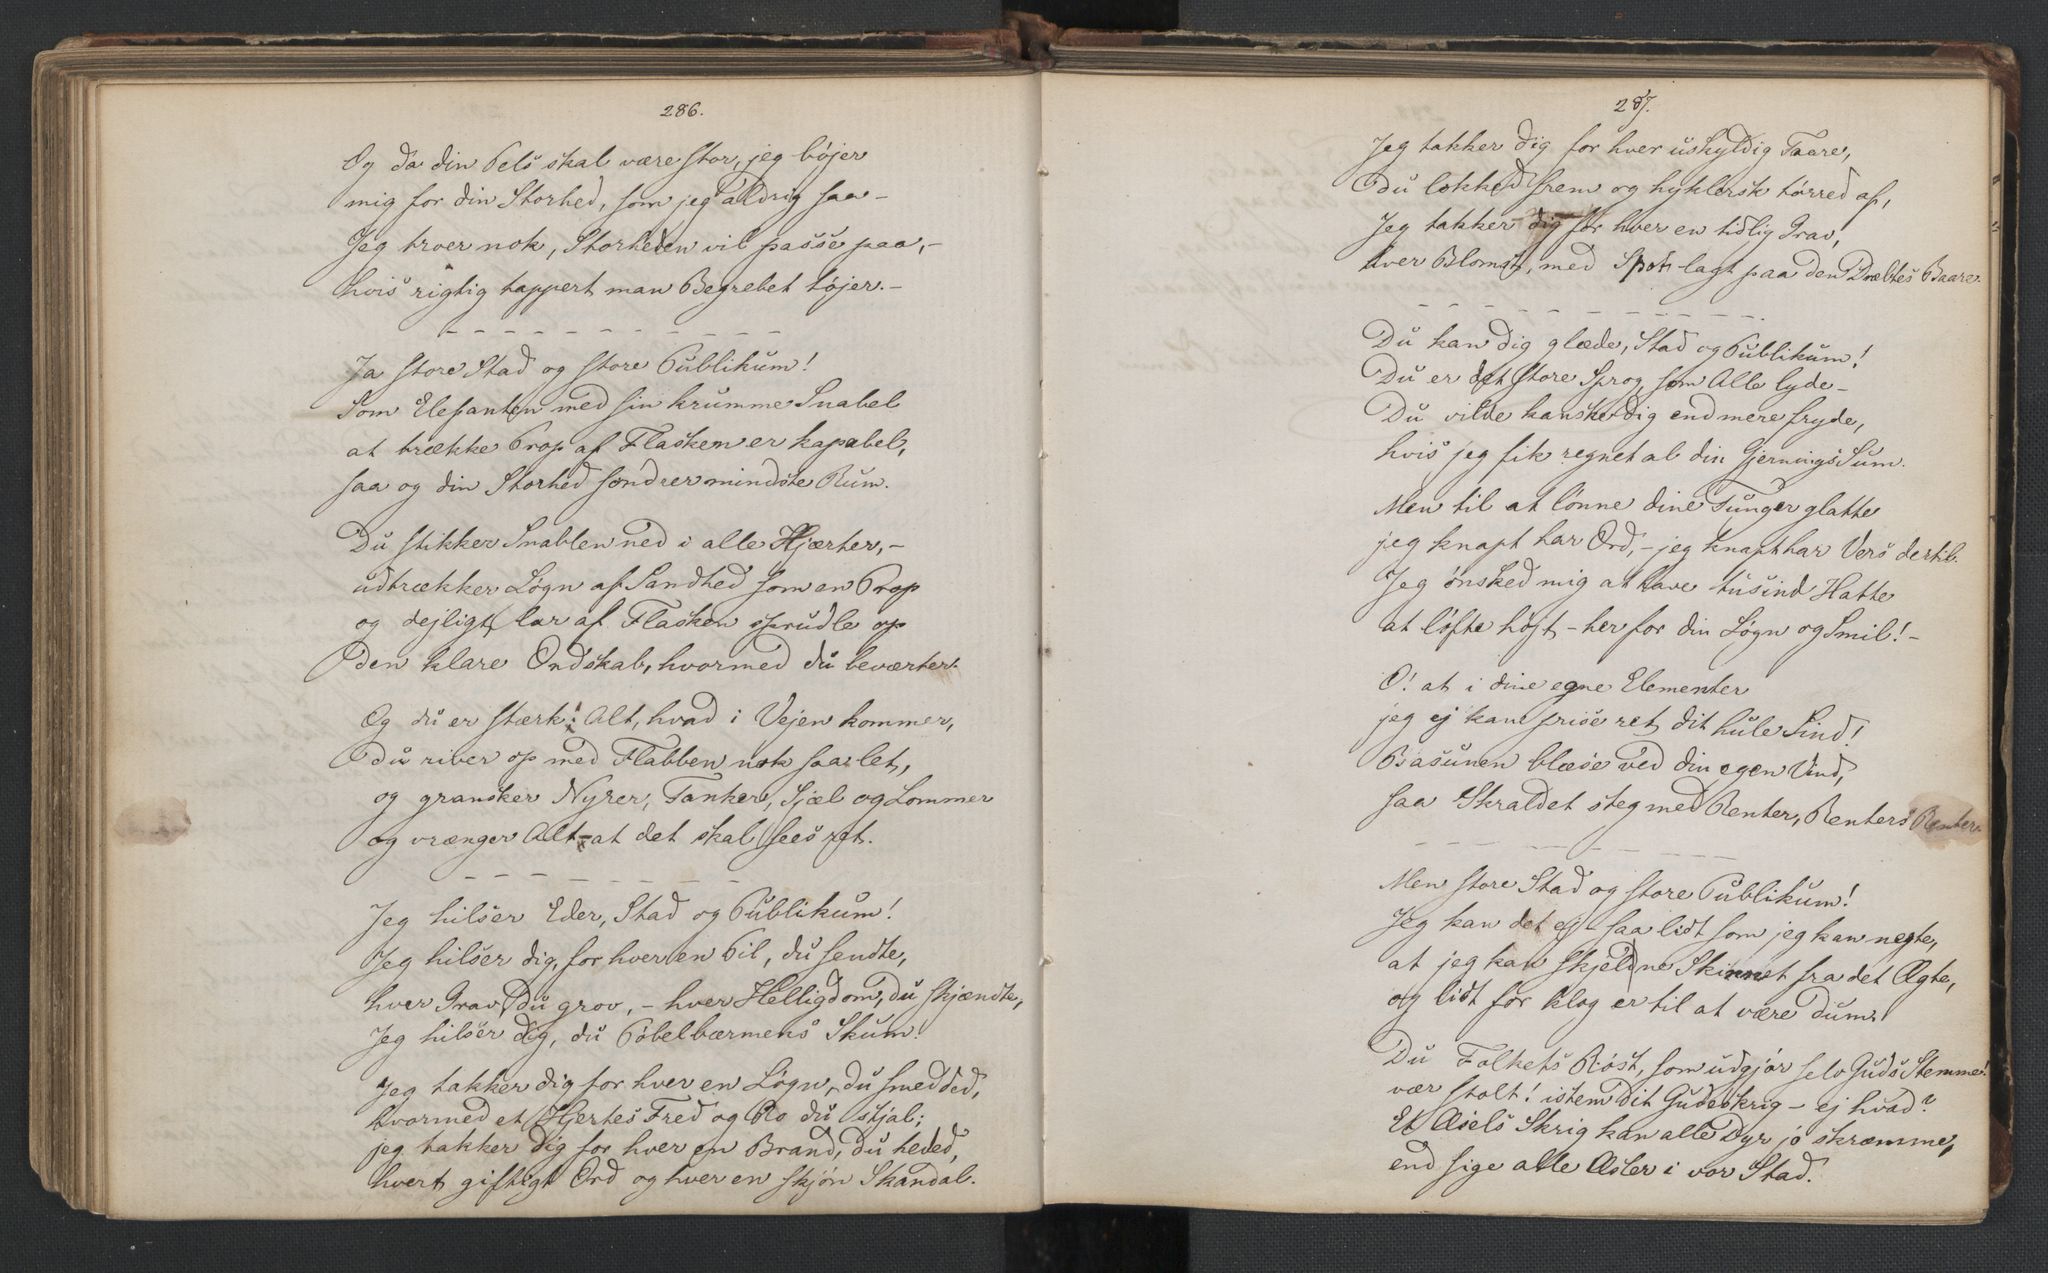 286.
Og da din Pels skal være stor, jeg bøjer
mig for din Storhed, som jeg aldrig saa –
Jeg troer nok, Storheden vil passe paa, –
hvis rigtig tappert man Begrebet tøjer. –
Ja store Stad og store Publikum!
Som Elefanten med sin krumme Snabel
at trække Prop af Flasken er kapabel,
saa og din Storhed søndrer mindste Rum.
Du stikker Snablen ned i alle Hjærter, –
udtrækker Løgn af Sandhed som en Prop
og dejligt lar af Flasken sprudle op
den klare Ondskab, hvormed du beværter.
Og du er stærk! Alt, hvad i Vejen kommer,
du river op med Flabben nok saa let,
og gransker Nyrer, Tanker, Sjæl og Lommer
og vrænger Alt – at det skal sees ret.
Jeg hilser Eder, Stad og Publikum!
Jeg hilser dig, for hver en Pil, du sendte,
hver Grav, du grov, – hver Helligdom, du skjændte,
Jeg hilser dig, du Pøbelbærmens Skum!
Jeg takker dig for hver en Løgn, du smedded,
hvormed et Hjertes Fred og Ro du stjal;
jeg takker dig for hver en Brand, du heded,
hvert giftigt Ord og hver en skjøn Skandal.
287.
Jeg takker dig for hver uskyldig Taare,
Du lokked frem og hyklersk tørred af,
Jeg takker dig for hver en tidlig Grav,
hver Blomst, med Spot lagt paa den Dræbtes Baare.
Du kan dig glæde, Stad og Publikum!
Du er det store Sprog, som Alle lyde –
Du vilde kanske dig end mere fryde,
hvis jeg fik regnet al din Gjernings Sum.
Men til at lönne dine Tunger glatte
jeg knapt har Ord, – jeg knapt har Vers dertil.
Jeg ønsked mig at have tusind Hatte
at løfte højt – her for din Løgn og Smil! –
O! at i dine egne Elementer
jeg ej kan prise ret dit hule Sind!
Basunen blæse ved din egen Vind,
saa Skraldet steg med Renter, Renters Renter.
Men store Stad og store Publikum!
Jeg kan det ej – saa lidt som jeg kan negte,
at jeg kan skjelne Skinnet fra det Ægte,
og lidt for klog er til at være dum.
Du Folkets Røst, som udgjør selv Guds Stemme!
vær stolt! istem dit Gudeskrig – ej hvad?
Et Æsels Skrig kan alle Dyr jo skræmme,
end sige alle Æsler i vor Stad.